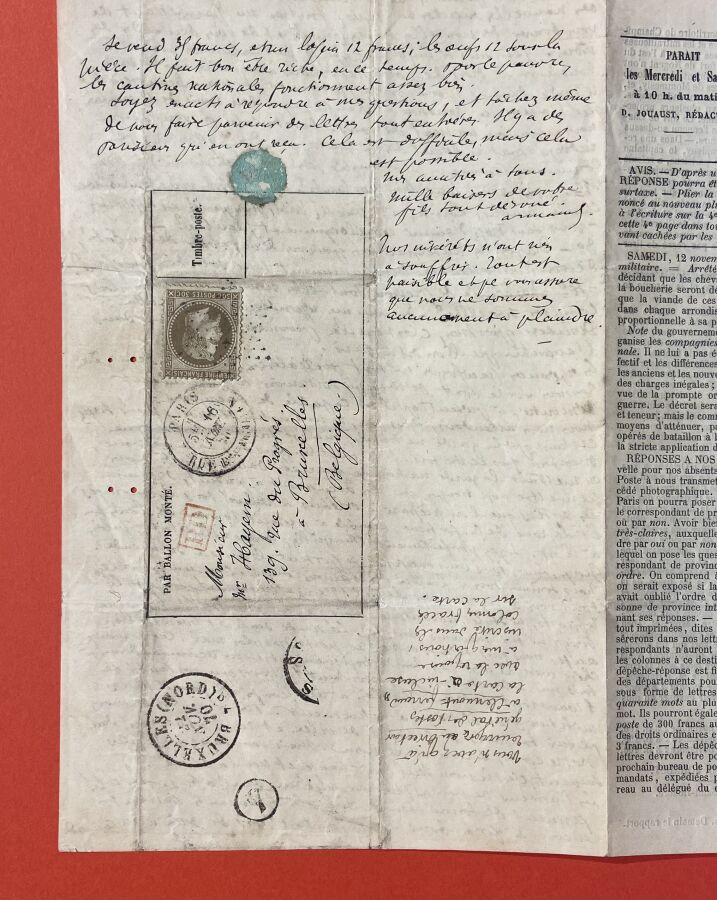 se vend 35 francs, et un lapin 12 francs; les œufs 12 sous la
pièce. Il fait bon être riche, en ce temps. Pour le pauvre,
les cantines nationales fonctionnent assez bien.
Soyez exacts à répondre à mes questions, et tâchez même
de nous faire parvenir des lettres tout entières. Il y a des
parisiens qui en ont reçu. Cela est difficile, mais cela
est possible.
Mes amitiés à tous.
Mille baisers de votre
fils tout dévoué.
Armand.
Nos intérêts n'ont rien
à souffrir. Tout est
paisible et je vous assure
que nous ne sommes
aucunement à plaindre.
Timbre-poste.
EMPIRE FRANÇAIS
30 C POSTES 30 C
PARIS
PAR BALLON MONTÉ.
PD
Monsieur
Mr Hayem.
139, rue du Progrès
à Bruxelles.
(Belgique)
Vous n'avez qu'à
envoyer au Directeur
général des Postes,
à Clermont-Ferrand,
la carte ci-incluse
avec les réponses
à mes questions,
inscrites dans les
colonnes tracées
sur la carte.
BRUXELLES (NORD)
NOV
PARAIT
les Mercredi et Sa
à 10 h. du mati
D. JOUAUST, RÉDAC
AVIS. — D'après u
RÉPONSE pourra êt
surtaxe. — Plier la
noncé au nouveau pl
à l'écriture sur la 4e
cette 4e page dans tou
vant cachées par les
SAMEDI, 12 novem
militaire. = Arrêté
décidant que les chev
la boucherie seront dé
que la viande de ces
dans chaque arrondis
proportionnelle à sa p
Note du gouverneme
ganise les compagnies
nale. Il ne lui a pas é
fectif et les différences
les anciens et les nouve
des charges inégales;
vue de la prompte or
guerre. Le décret sera
et teneur; mais le com
moyens d'atténuer, pa
opérés de bataillon à b
la stricte application d
RÉPONSES A NOS
velle pour nos absents
Poste à nous transmet
cédé photographique.
Paris on pourra poser
le correspondant de pr
ou par non. Avoir bien
très-claires, auxquelle
dre par oui ou par non
lequel on pose les ques
respondant de provinc
ordre. On comprend
on serait exposé si la
avait oublié l'ordre d
sonne de province int
nant ses réponses. —
tout imprimées, dites
sérerons dans nos lettr
respondants n'auront
les colonnes à ce desti
dépêche-réponse est fi
des départements pou
sous forme de lettres
quarante mots au plus
mot. Ils pourront égale
poste de 300 francs au
des droits ordinaires e
3 francs. — Les dépêc
lettres devront être po
prochain bureau de po
mandats, expédiées p
reau au délégué du d